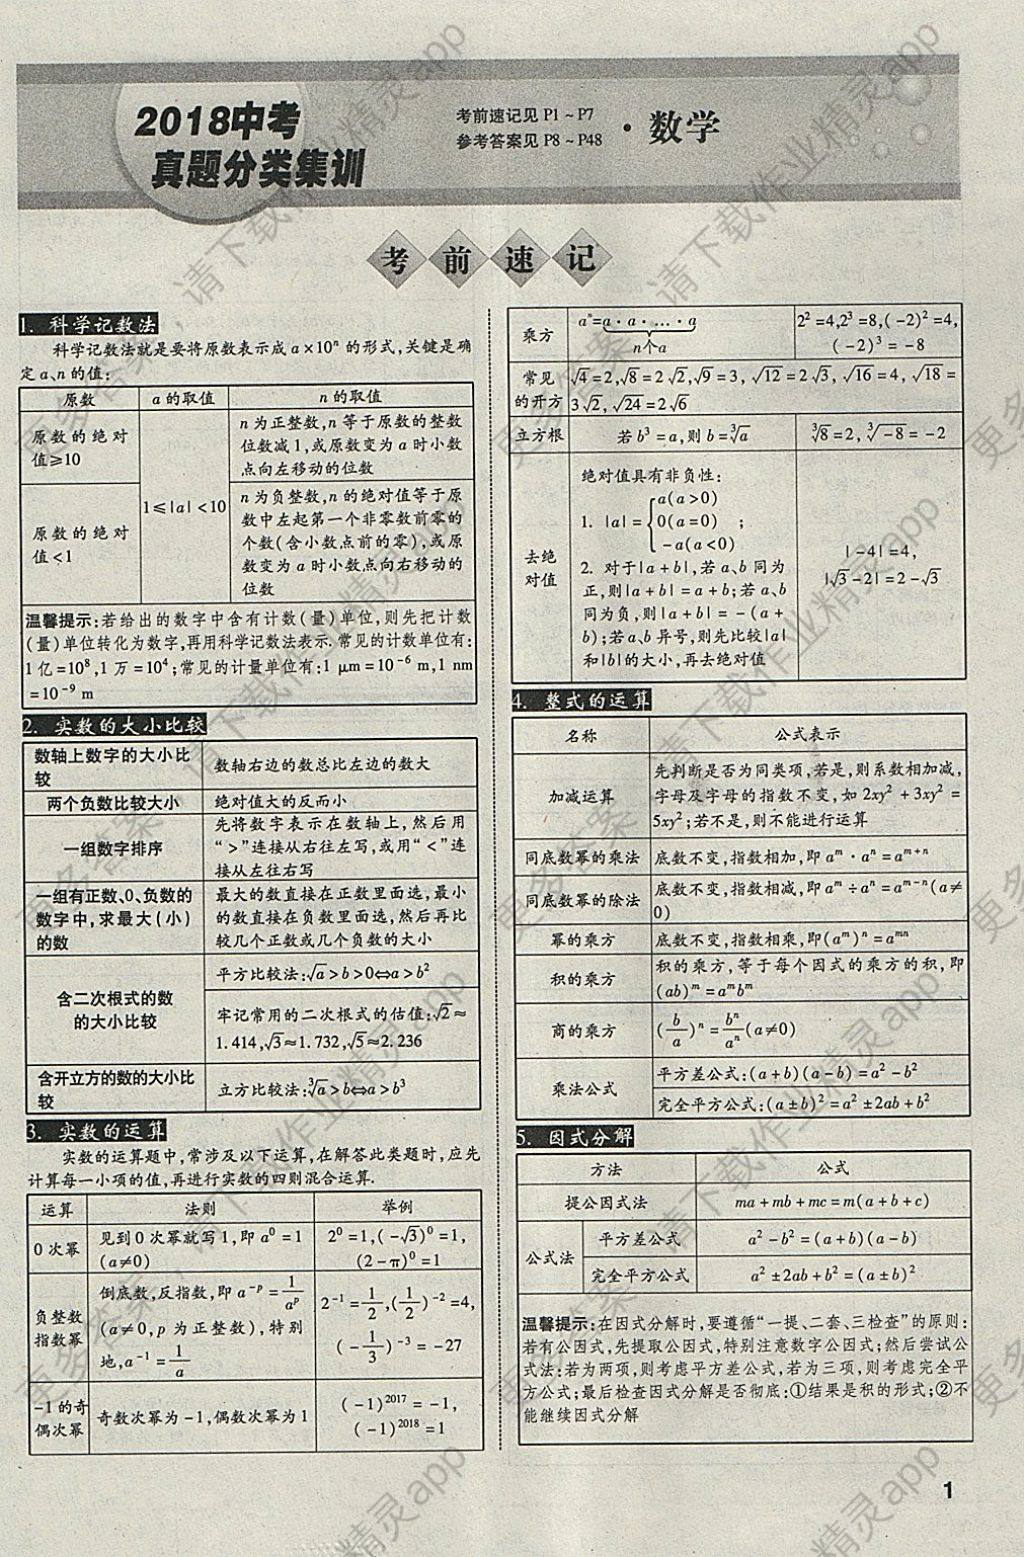 2018中考
真题分类集训
考前速记见 P1 ~ P7
参考答案见 P8 ~ P48
·数学
考前速记
1. 科学记数法
科学记数法就是要将原数表示成 a×10ⁿ 的形式,关键是确
定 a、n 的值:
原数 a 的取值 n 的取值
原数的绝对
值≥10
1≤|a|<10
n 为正整数,n 等于原数的整数
位数减1,或原数变为 a 时小数
点向左移动的位数
原数的绝对
值<1
n 为负整数,n 的绝对值等于原
数中左起第一个非零数前零的
个数(含小数点前的零),或原
数变为 a 时小数点向右移动的
位数
温馨提示:若给出的数字中含有计数(量)单位,则先把计数
(量)单位转化为数字,再用科学记数法表示.常见的计数单位有:
1 亿=10⁸,1 万=10⁴;常见的计量单位有:1 μm=10⁻⁶ m,1 nm
=10⁻⁹ m
2. 实数的大小比较
数轴上数字的大小比
较
数轴右边的数总比左边的数大
两个负数比较大小 绝对值大的反而小
一组数字排序
先将数字表示在数轴上,然后用
“>”连接从右往左写,或用“<”连
接从左往右写
一组有正数、0、负数的
数字中,求最大(小)
的数
最大的数直接在正数里面选,最小
的数直接在负数里面选,然后再比
较几个正数或几个负数的大小
含二次根式的数
的大小比较
平方比较法:√a>b>0⇔a>b²
牢记常用的二次根式的估值:√2≈
1.414,√3≈1.732,√5≈2.236
含开立方的数的大小比
较
立方比较法:∛a>b⇔a>b³
3. 实数的运算
实数的运算题中,常涉及以下运算,在解答此类题时,应先
计算每一小项的值,再进行实数的四则混合运算.
运算 法则 举例
0 次幂
见到 0 次幂就写 1,即 a⁰=1
(a≠0)
2⁰=1,(-√3)⁰=1,
(2-π)⁰=1
负整数
指数幂
倒底数,反指数,即 a⁻ᵖ=1/aᵖ
(a≠0,p 为正整数),特别
地,a⁻¹=1/a
2⁻¹=1/2,(1/2)⁻²=4,
(-1/3)⁻³=-27
-1的奇
偶次幂
奇数次幂为-1,偶数次幂为1
(-1)²⁰¹⁷=-1,
(-1)²⁰¹⁸=1
乘方
aⁿ=a·a·…·a
n个a
2²=4,2³=8,(-2)²=4,
(-2)³=-8
常见
的开方
√4=2,√8=2√2,√9=3,√12=2√3,√16=4,√18=
3√2,√24=2√6
立方根 若 b³=a,则 b=∛a ∛8=2,∛-8=-2
去绝
对值
绝对值具有非负性:
1. |a|={a(a>0)
0(a=0) ;
-a(a<0)
2. 对于|a+b|,若 a、b 同为
正,则|a+b|=a+b;若 a、b
同为负,则|a+b|=-(a+
b);若 a、b 异号,则先比较|a|
和|b|的大小,再去绝对值
|-4|=4,
|√3-2|=2-√3
4. 整式的运算
名称 公式表示
加减运算
先判断是否为同类项,若是,则系数相加减,
字母及字母的指数不变,如 2xy²+3xy²=
5xy²;若不是,则不能进行运算
同底数幂的乘法 底数不变,指数相加,即 aᵐ·aⁿ=aᵐ⁺ⁿ
同底数幂的除法
底数不变,指数相减,即 aᵐ÷aⁿ=aᵐ⁻ⁿ(a≠
0)
幂的乘方 底数不变,指数相乘,即(aᵐ)ⁿ=aᵐⁿ
积的乘方
积的乘方,等于每个因式的乘方的积,即
(ab)ᵐ=aᵐbᵐ
商的乘方 (b/a)ⁿ=bⁿ/aⁿ(a≠0)
乘法公式
平方差公式:(a+b)(a-b)=a²-b²
完全平方公式:(a±b)²=a²±2ab+b²
5. 因式分解
方法 公式
提公因式法 ma+mb+mc=m(a+b+c)
公式法
平方差公式 a²-b²=(a+b)(a-b)
完全平方公式 a²±2ab+b²=(a±b)²
温馨提示:在因式分解时,要遵循“一提、二套、三检查”的原则:
若有公因式,先提取公因式,特别注意数字公因式;然后尝试公
式法:若为两项,则考虑平方差公式,若为三项,则考虑完全平
方公式;最后检查因式分解是否彻底:①结果是积的形式;②不
能继续因式分解
1
请下载作业精灵app
更多答案